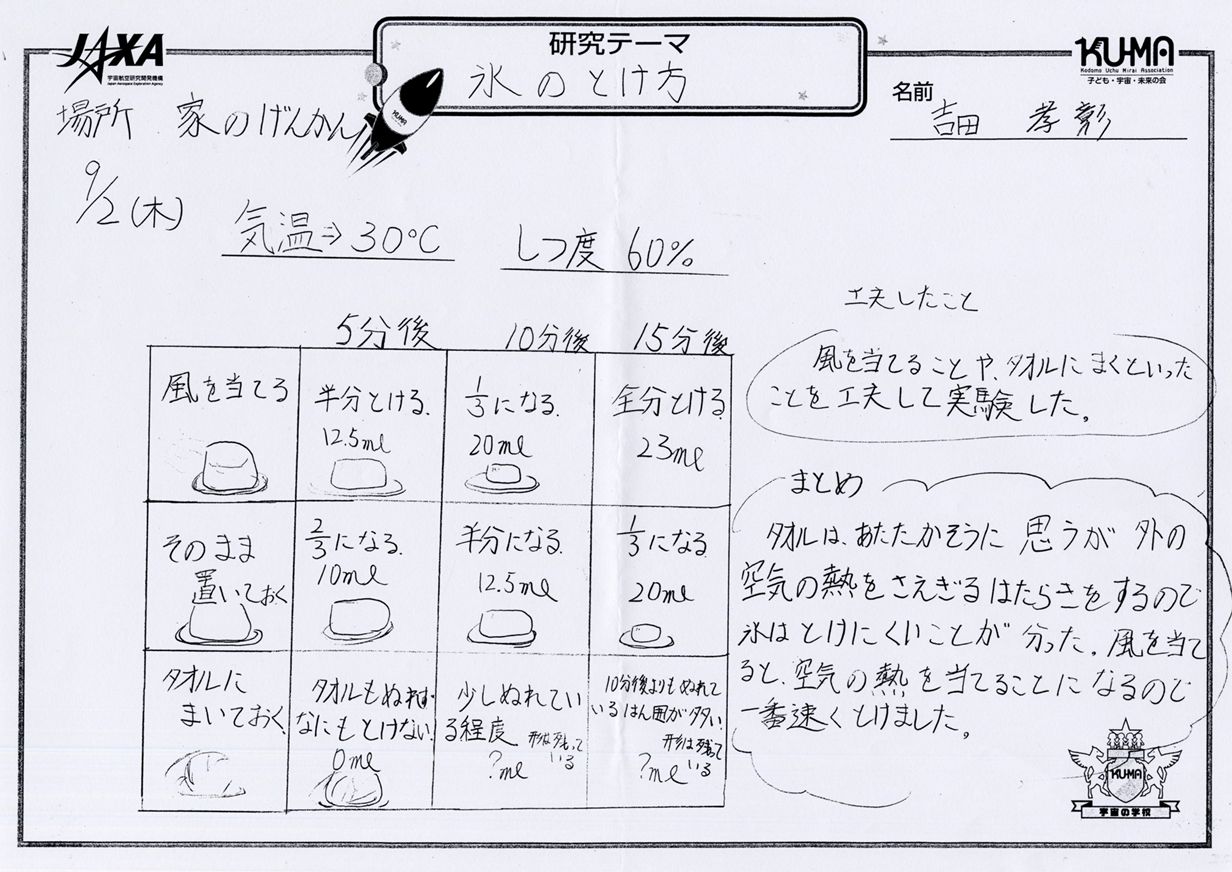 JAXA
宇宙航空研究開発機構
Japan Aerospace Exploration Agency
研究テーマ
氷のとけ方
KUMA
Kodomo Uchu Mirai Association
子ども・宇宙・未来の会
名前
吉田 孝彰
場所 家のげんかん
KUMA
9/2(木)
気温⇒30℃
しつ度 60%
5分後 10分後 15分後
風を当てる
半分とける.
12.5ml
1/3になる.
20ml
全分とける
23ml
そのまま
置いておく
2/3になる.
10ml
半分になる.
12.5ml
1/3になる
20ml
タオルに
まいておく
タオルもぬれず
なにもとけない.
0ml
少しぬれてい
る程度
形は残って
いる
?ml
10分後よりもぬれて
いるはん囲が多い.
形は残って
いる
?ml
工夫したこと
風を当てることや、タオルにまくといった
ことを工夫して実験した。
まとめ
タオルは、あたたかそうに思うが外の
空気の熱をさえぎるはたらきをするので
氷はとけにくいことが分った。風を当て
ると、空気の熱を当てることになるので
一番速くとけました。
KUMA
宇宙の学校